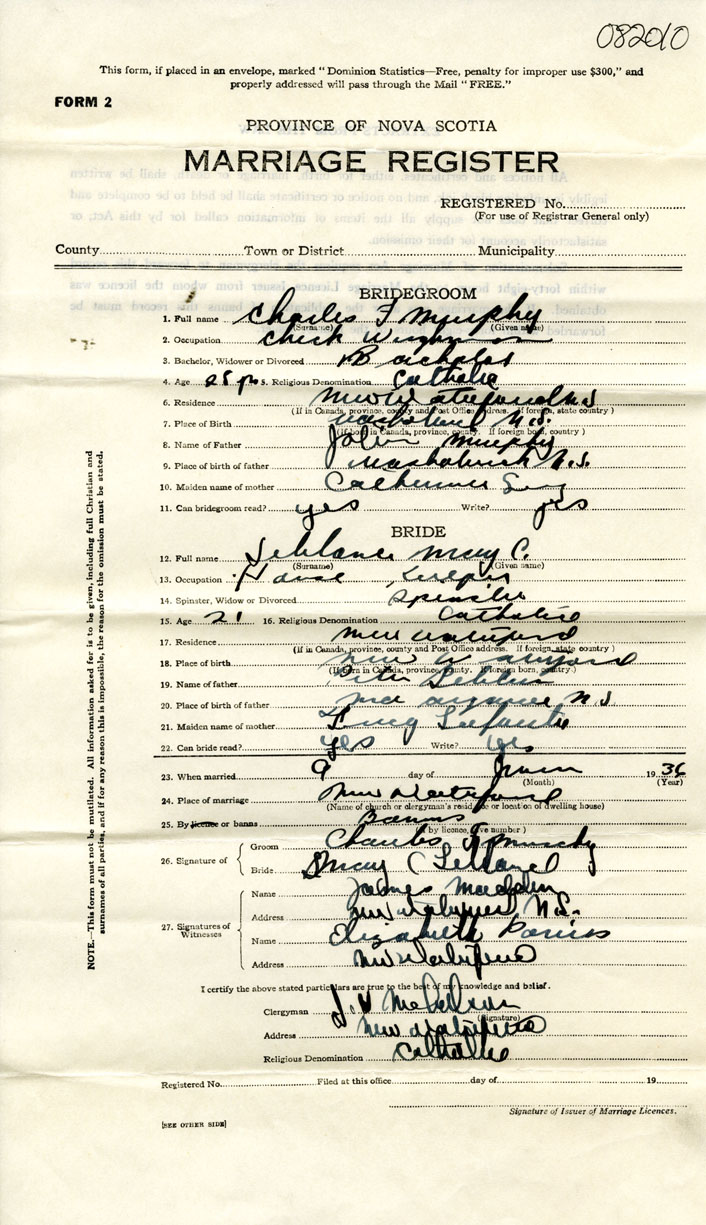 082010
This form, if placed in an envelope, marked "Dominion Statistics—Free, penalty for improper use $300," and
properly addressed will pass through the Mail "FREE."
FORM 2
PROVINCE OF NOVA SCOTIA
MARRIAGE REGISTER
REGISTERED No.
(For use of Registrar General only)
County Town or District Municipality
BRIDEGROOM
1. Full name Charles F Murphy
(Surname) (Given name)
2. Occupation Check
3. Bachelor, Widower or Divorced Bachelor
4. Age 25 yrs 5. Religious Denomination Catholic
6. Residence New Waterford N.S.
(If in Canada, province, county and Post Office address. If foreign, state country)
7. Place of Birth N.S.
(If born in Canada, province, county. If foreign born, country)
8. Name of Father John Murphy
9. Place of birth of father N.S.
10. Maiden name of mother Catherine
11. Can bridegroom read? yes Write? yes
BRIDE
12. Full name Leblanc Mary C.
(Surname) (Given name)
13. Occupation House keeper
14. Spinster, Widow or Divorced Spinster
15. Age 21 16. Religious Denomination Catholic
17. Residence New Waterford
(If in Canada, province, county and Post Office address. If foreign, state country)
18. Place of birth New Waterford
(If born in Canada, province, county. If foreign born, country)
19. Name of father Peter Leblanc
20. Place of birth of father N S
21. Maiden name of mother Lucy
22. Can bride read? yes Write? yes
23. When married 9 day of 1936
(Month) (Year)
24. Place of marriage New Waterford
(Name of church or clergyman's residence or location of dwelling house)
25. By licence or banns Banns
(If by licence, give number)
26. Signature of Groom Charles F Murphy
Bride Mary C Leblanc
27. Signatures of Witnesses
Name James
Address New Waterford N.S.
Name Elizabeth
Address New Waterford
I certify the above stated particulars are true to the best of my knowledge and belief.
Clergyman
(Signature)
Address New Waterford
Religious Denomination Catholic
Registered No. Filed at this office day of 19
Signature of Issuer of Marriage Licences.
[SEE OTHER SIDE]
NOTE.—This form must not be mutilated. All information asked for is to be given, including full Christian and
surnames of all parties, and if for any reason this is impossible, the reason for the omission must be stated.